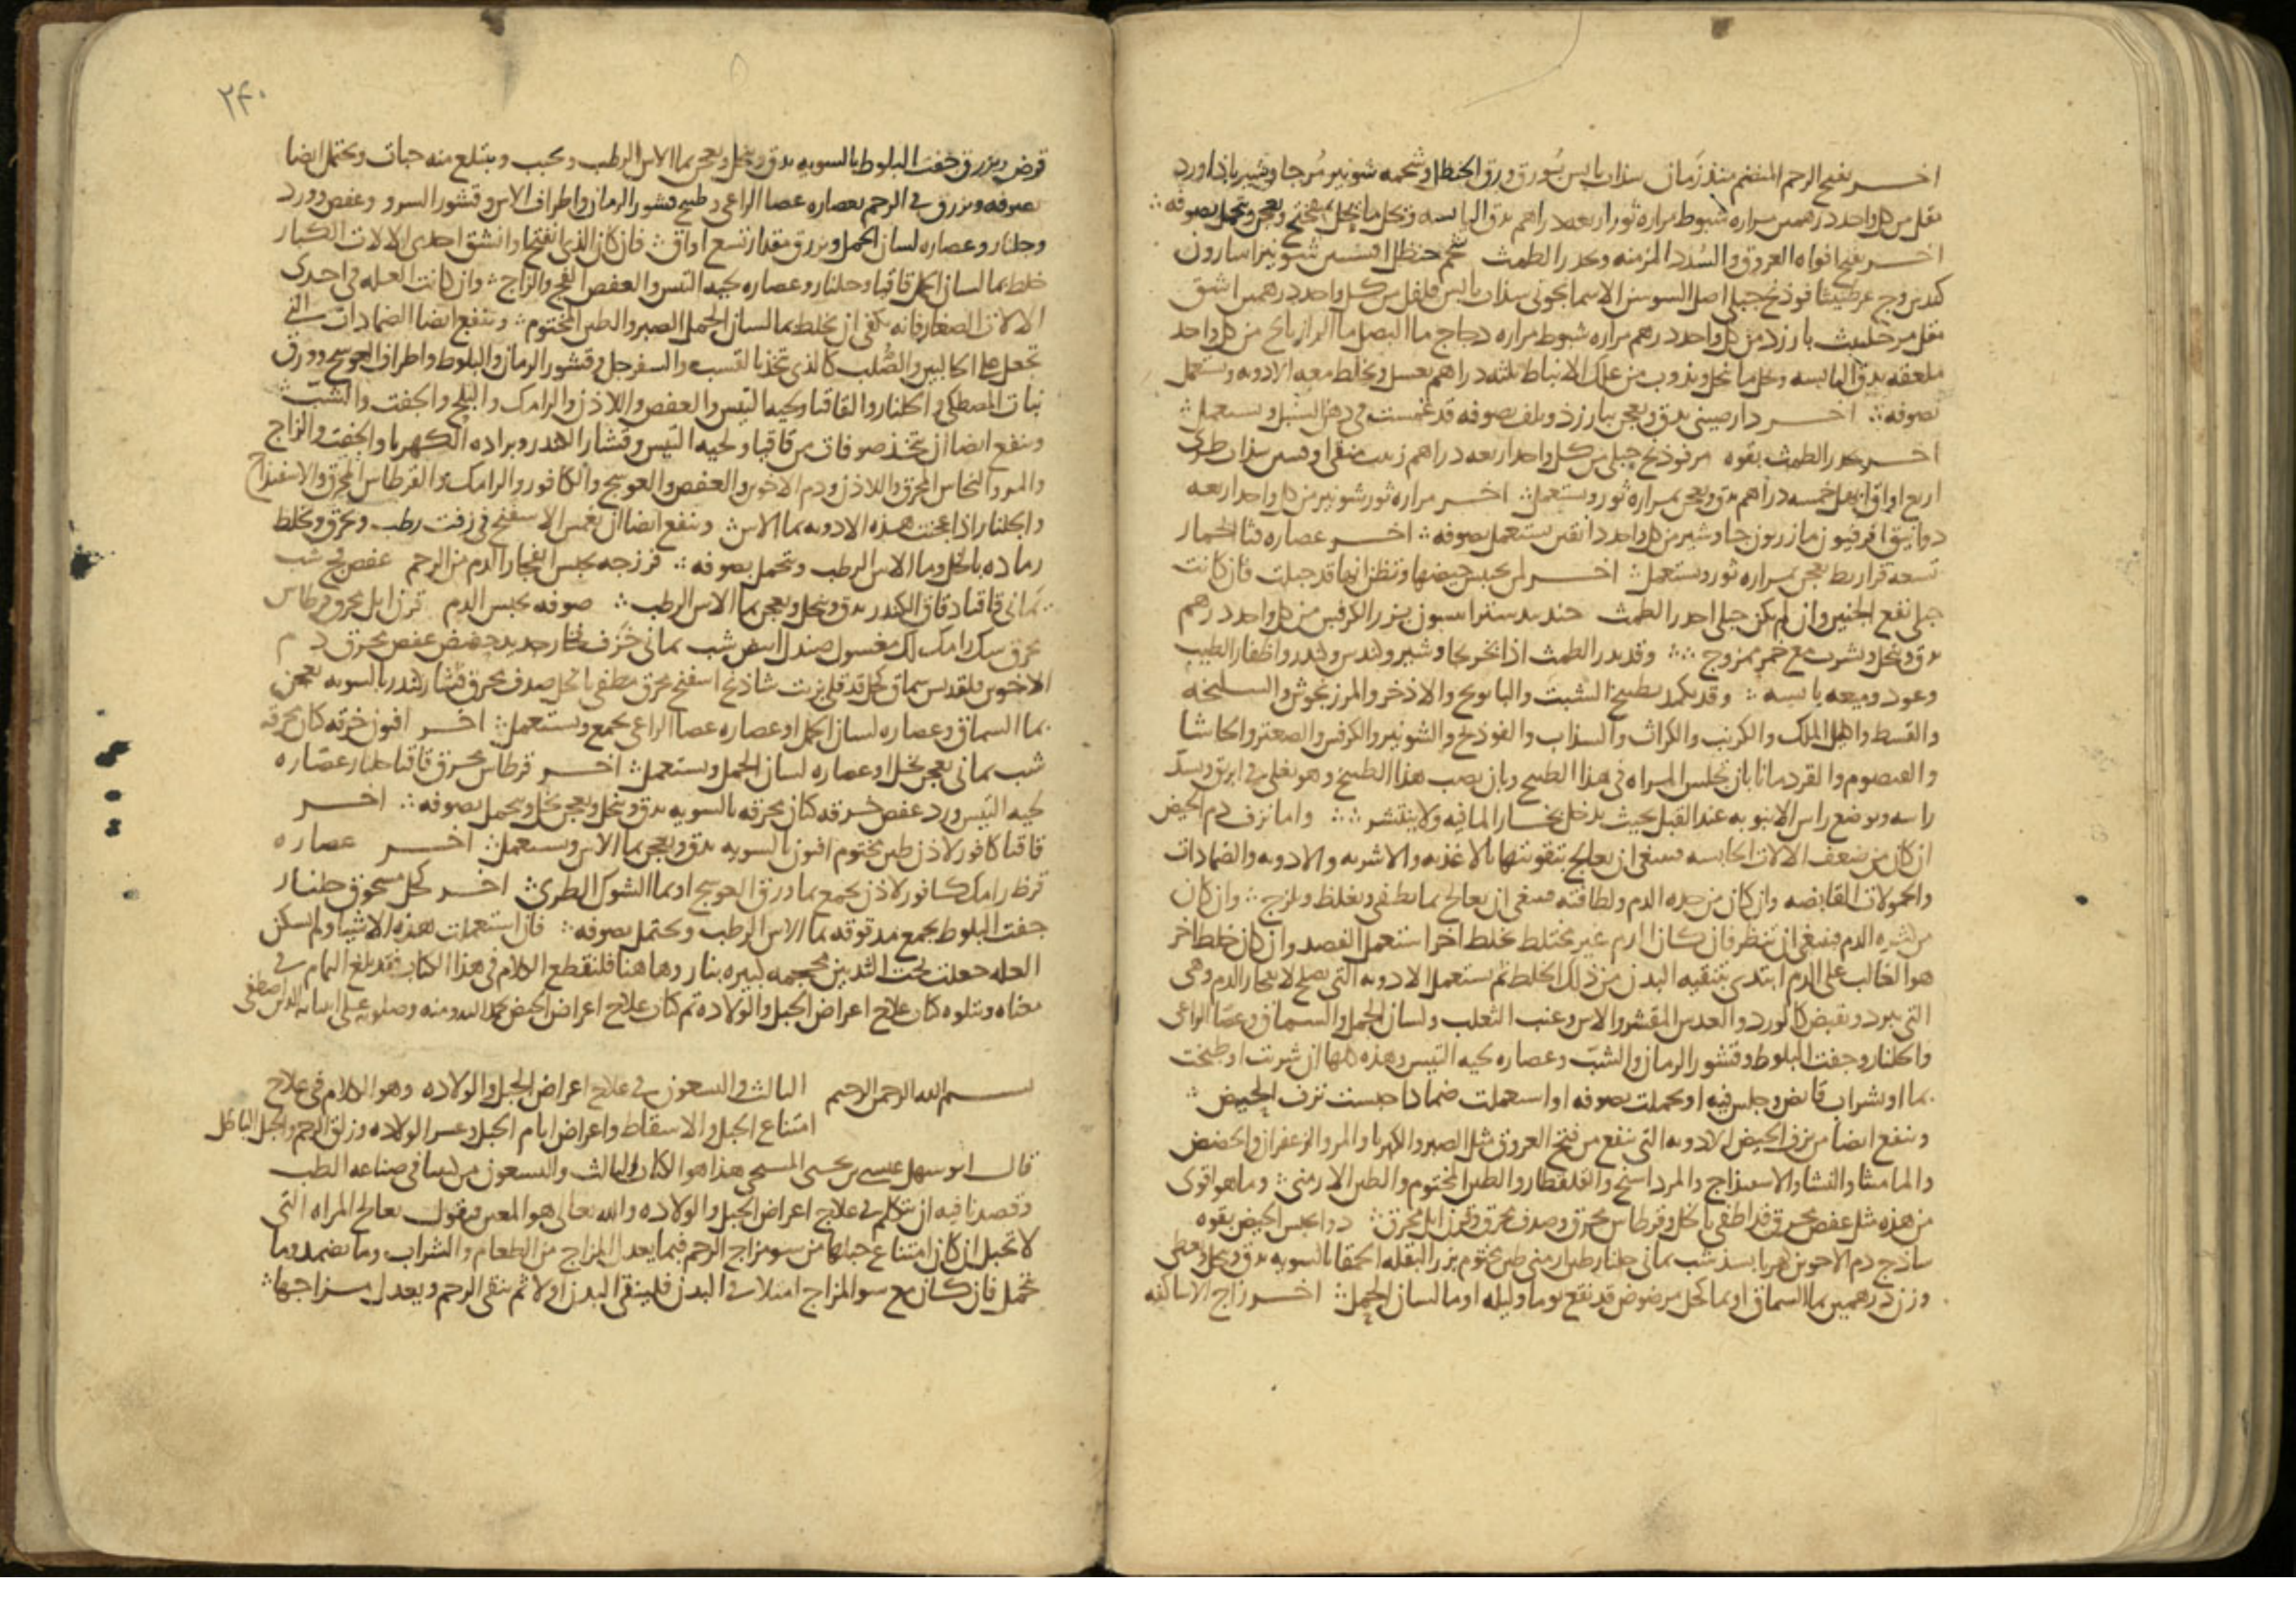 اخر يفتح الرحم المنضم منذ زمان سذاب يابس بورق ورق الحنظل او شحمه شونيز مر جاوشير باذاورد
مقل من كل واحد درهمين مراره شبوط مراره ثور اربعه دراهم يدق اليابسه وتحل ما ينحل بميبختج ويعجن ويتحمل بصوفه
اخر يفتح افواه العروق والسدد المزمنه ويدر الطمث شحم حنظل افسنتين شونيز اسارون
فوذنج جبلي اصل السوسن الاسمانجوني سذاب يابس فلفل من كل واحد درهمين اشق
مقل مر حلتيت بارزد من كل واحد درهم مراره شبوط مراره دجاج ما البصل ما الرازيانج من كل واحد
ملعقه يدق اليابسه ويحل ما ينحل ويذوب من علك الانباط ثلثه دراهم بعسل ويخلط معه الادويه ويستعمل
بصوفه اخر دارصيني يدق ويعجن ببارزد ويلف بصوفه قد غمست في دهن السنبل ويستعمل
اخر يدر الطمث بقوه مر فوذنج جبلي من كل واحد اربعه دراهم زبيب منقى اوقيتين سذاب طري
اربع اواق ابهل خمسه دراهم يدق ويعجن بمراره ثور ويستعمل اخر مراره ثور شونيز من كل واحد اربعه
دوانيق افرفيون مازريون جاوشير من كل واحد دانقين يستعمل بصوفه اخر عصاره قثا الحمار
تسعه قراريط يعجن بمراره ثور ويستعمل اخر لمن يحبس حيضها وتظن انها قد حبلت فان كانت
حبلى نفع الجنين وان لم تكن حبلى ادر الطمث جندبيدستر انيسون بزر الكرفس من كل واحد درهم
يدق وينخل ويشرب مع خمر ممزوج وقد يدر الطمث اذا بخر بجاوشير وكندس وكندر واظفار الطيب
وعود وميعه يابسه وقد يكمد بطبيخ الشبت والبابونج والاذخر والمرزنجوش والسليخه
والقسط واكليل الملك والكرنب والكراث والسذاب والفوذنج والشونيز والكرفس والصعتر والكاشا
والقيصوم والقردمانا بان تجلس المراه في هذا الطبيخ وبان يصب هذا الطبيخ وهو يغلي في ابريق ويسد
راسه ويوضع راس الانبوبه عند القبل بحيث يدخل بخار الما فيه ولا ينتشر واما نزف دم الحيض
ان كان من ضعف الالات الحابسه فينبغي ان يعالج بتقويتها بالاغذيه والاشربه والادويه والضمادات
والحمولات القابضه وان كان من حده الدم ولطافته فينبغي ان يعالج بما يطفي ويغلظ ويلزج وان كان
من كثره الدم فينبغي ان تنظر فان كان الدم غير مختلط بخلط اخر استعمل الفصد وان كان خلط اخر
هو الغالب على الدم ابتدى بتنقيه البدن من ذلك الخلط ثم يستعمل الادويه التي يصلح لانفجار الدم وهي
التي يبرد ويقبض كالورد والعدس المقشر والاس وعنب الثعلب ولسان الحمل والسماق وعصا الراعي
والجلنار وجفت البلوط وقشور الرمان والشب وعصاره لحيه التيس وهذه كلها ان شربت او طبخت
بما او شراب قابض وجلس فيه او تحملت بصوفه او استعملت ضمادا حبست نزف الحيض
وينفع ايضا من نزف الحيض الادويه التي تنفع من فتح العروق مثل الصبر والكهربا والمر والزعفران والحضض
والماميثا والنشا والاسفيذاج والمرداسنج والقلقطار والطين المختوم والطين الارمني وما هو اقوى
من هذه مثل عفص محرق قد اطفي بالخل وقرطاس محرق وصدف محرق وقرن ايل محرق دوا يحبس الحيض بقوه
ساذج دم الاخوين كهربا بسد شب يماني جلنار طين ارمني طين مختوم بزر البقله الحمقا بالسويه يدق وينخل ويعطى
وزن درهمين بما السماق او بما كحل مرضوض قد نقع يوما وليله او ما لسان الحمل اخر زاج الاساكفه
٢٤٠
قرض ويزرق جفت البلوط بالسويه يدق وينخل ويعجن بما الاس الرطب ويحبب ويبتلع منه حبات ويحتمل ايضا
بصوفه ويزرق في الرحم بعصاره عصا الراعي وطبيخ قشور الرمان واطراف الاس وقشور السرو وعفص وورد
وجلنار وعصاره لسان الحمل ويزرق مقدار تسع اواق فان كان الذي انفتح او انشق احدى الالات الكبار
خلط بما لسان الحمل قاقيا وجلنار وعصاره لحيه التيس والعفص الفج والزاج وان كانت العله في احدى
الالات الصغار فانه يكفي ان يخلط بما لسان الحمل الصبر والطين المختوم وينفع ايضا الضمادات التي
تجعل على الحالبين والصلب كالذي يتخذ بالقسب والسفرجل وقشور الرمان والبلوط واطراف العوسج وورق
نبات المصطكي والجلنار والقاقيا ولحيه التيس والعفص واللاذن والرامك والبلح والجفت والشب
وينفع ايضا ان يتخذ صوفات من قاقيا ولحيه التيس وقشار الكندر وبراده الكهربا والجفت والزاج
والمر والنحاس المحرق واللاذن ودم الاخوين والعفص والعوسج والكافور والرامك والقرطاس المحرق والاسفيداج
والجلنار اذا عجنت هذه الادويه بما الاس وينفع ايضا ان يغمس الاسفنج في زفت رطب ويحرق ويخلط
رماده بالخل وما الاس الرطب ويتحمل بصوفه فرزجه يحبس انفجار الدم من الرحم عفص فج شب
يماني قاقيا دقاق الكندر يدق وينخل ويعجن بما الاس الرطب صوفه يحبس الدم قرن ايل محرق قرطاس
محرق سك رامك لك مغسول صندل ابيض شب يماني خزف فخار جديد حضض عفص محرق دم
الاخوين قلقديس سماق كحل قد قلي بزيت شاذنج اسفنج محرق مطفي بالخل صدف محرق قشار كندر بالسويه يعجن
بما السماق وعصاره لسان الحمل او عصاره عصا الراعي يجمع ويستعمل اخر افيون خرقه كتان محرقه
شب يماني يعجن بخل او عصاره لسان الحمل ويستعمل اخر قرطاس محرق قاقيا جلنار عصاره
لحيه التيس ورد عفص خرقه كتان محرقه بالسويه يدق وينخل ويعجن بخل ويتحمل بصوفه اخر
قاقيا كافور لاذن طين مختوم افيون بالسويه يدق ويعجن بما الاس ويستعمل اخر عصاره
قرظ رامك كافور لاذن يجمع بما ورق العوسج او بما الشوك الطري اخر كحل مسحوق جلنار
جفت البلوط يجمع مدقوقه بما الاس الرطب ويحتمل بصوفه فان استعملت هذه الاشيا ولم تسكن
العله جعلت تحت الثديين محجمه كبيره بنار وهاهنا فلنقطع الكلام في هذا الكتاب فقد بلغ التمام في
معناه ويتلوه كتاب علاج اعراض الحبل والولاده تم كتاب علاج اعراض الحيض بحمد الله ومنه وصلوته على انبيائه الذين اصطفى
بسم الله الرحمن الرحيم الثالث والسبعون في علاج اعراض الحبل والولاده وهو الكلام في علاج
امتناع الحبل والاسقاط واعراض ايام الحبل وعسر الولاده وزلق الرحم والحبل الباطل
قال ابو سهل عيسى بن يحيى المسيحي هذا هو الكتاب الثالث والسبعون من كتبنا في صناعه الطب
وقصدنا فيه ان نتكلم في علاج اعراض الحبل والولاده والله تعالى هو المعين فنقول يعالج المراه التي
لا تحبل ان كان امتناع حبلها من سو مزاج الرحم فبما يعدل المزاج من الطعام والشراب وما يضمد وما
تحمل فان كان مع سو المزاج امتلا في البدن فلينقى البدن اولا ثم ينقى الرحم ويعدل مزاجها